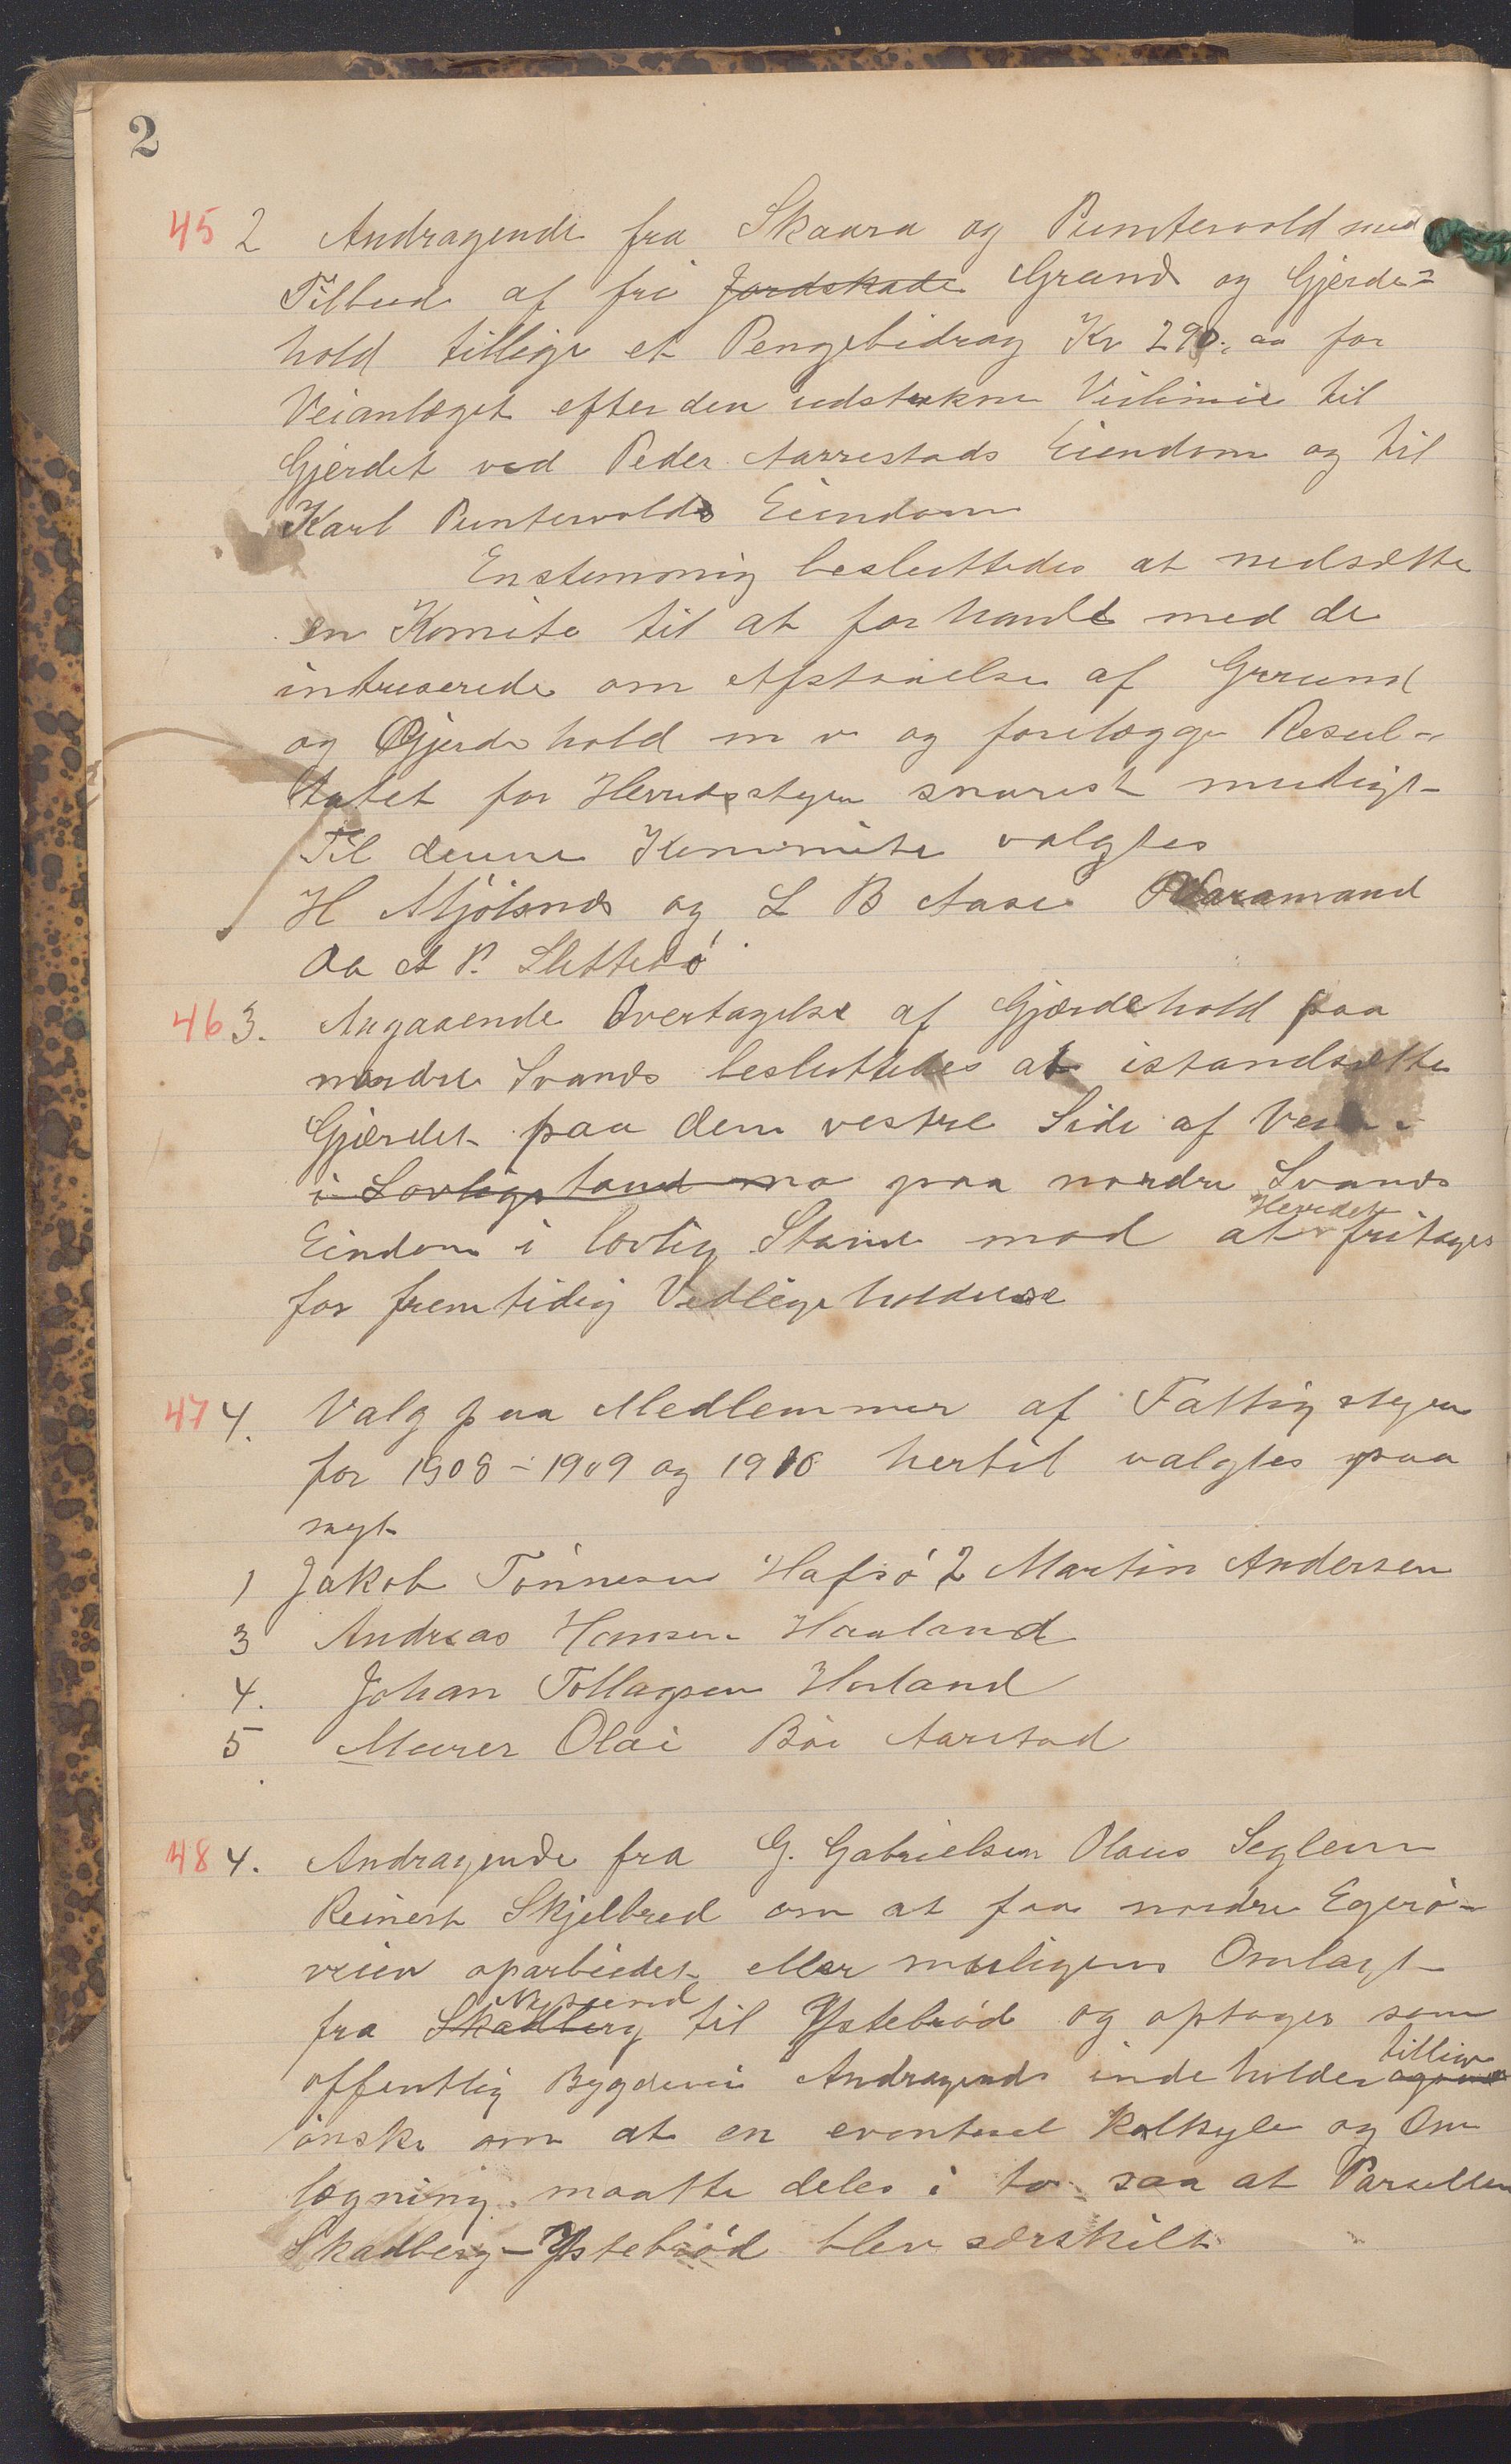 2
45 2 Andragende fra Skaara og Puntervold med
Tilbud af fri Jordskade Grund og Gjerde=
hold tillige et Pengebidrag Kr 290,00 for
Veianlæget efter den udstukne Veilinie til
Gjerdet ved Peder Aarrestads Eiendom og til
Karl Puntervolds Eiendom
Enstemmig besluttedes at nedsætte
en Komite til at forhandle med de
intreserede om Afstaaelse af Grund
og Gjerdehold m v og forelægge Resul-
tatet for Herredsstyre snarest muligt
Til denne Kommite valgtes
H Mjølsnes og L B Aase Varamand
Aa A P. Slettebø
46 3. Angaaende Overtagelse af Gjærdehold paa
nordre Svanes besluttedes at istandsætte
Gjærdet paa den vestre Side af Veien
i Lovlig stand paa nordre Svanes
Eiendom i lovlig Stand mod at Herredet fritages
for fremtidig Vedligeholdelse
47 4. Valg paa Medlemmer af Fattigstyre
for 1908 - 1909 og 1910 hertil valgtes paa
nyt
1 Jakob Tønnesen Hafsø 2 Martin Andersen
3 Andreas Hansen Haaland
4. Johan Tollagsen Hovland
5 Murer Olai Bøe Aarstad
48 4. Andragende fra G. Gabrielsen Olaus Seglem
Reinert Skjelbred om at faa nordre Egerø-
veien oparbeidet eller muligens Omlagt
fra Skadberg til Ystebrød og optages som
offentlig Bygdevei Andragende indeholder tillige
ønske om at en eventuel Kalkyle og Om
lægning maatte deles i to saa at Parsellen
Skadberg - Ystebrød blev særskilt